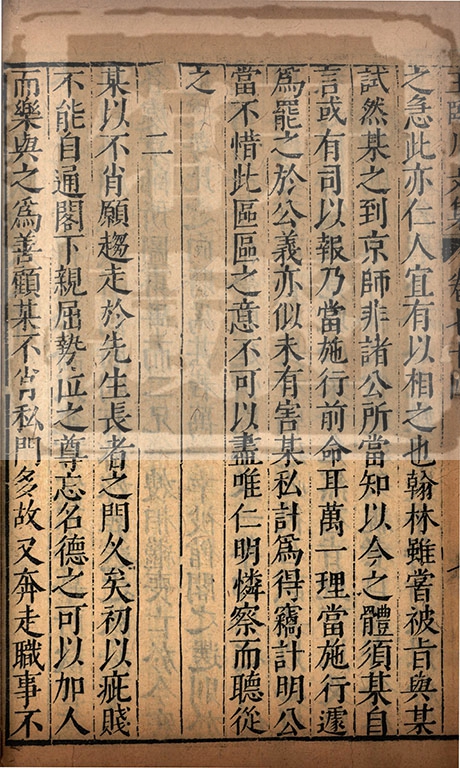 王臨川文集 卷七十四
之急此亦仁人宜有以相之也翰林雖嘗被旨與某
試然某之到京師非諸公所當知以今之體須某自
言或有司以報乃當施行前命耳萬一理當施行遽
爲罷之於公義亦似未有害某私計爲得竊計明公
當不惜此區區之意不可以盡唯仁明憐察而聽從
之
二
某以不肖願趨走於先生長者之門久矣初以疵賤
不能自通閣下親屈勢位之尊忘名德之可以加人
而樂與之爲善顧某不肖私門多故又奔走職事不